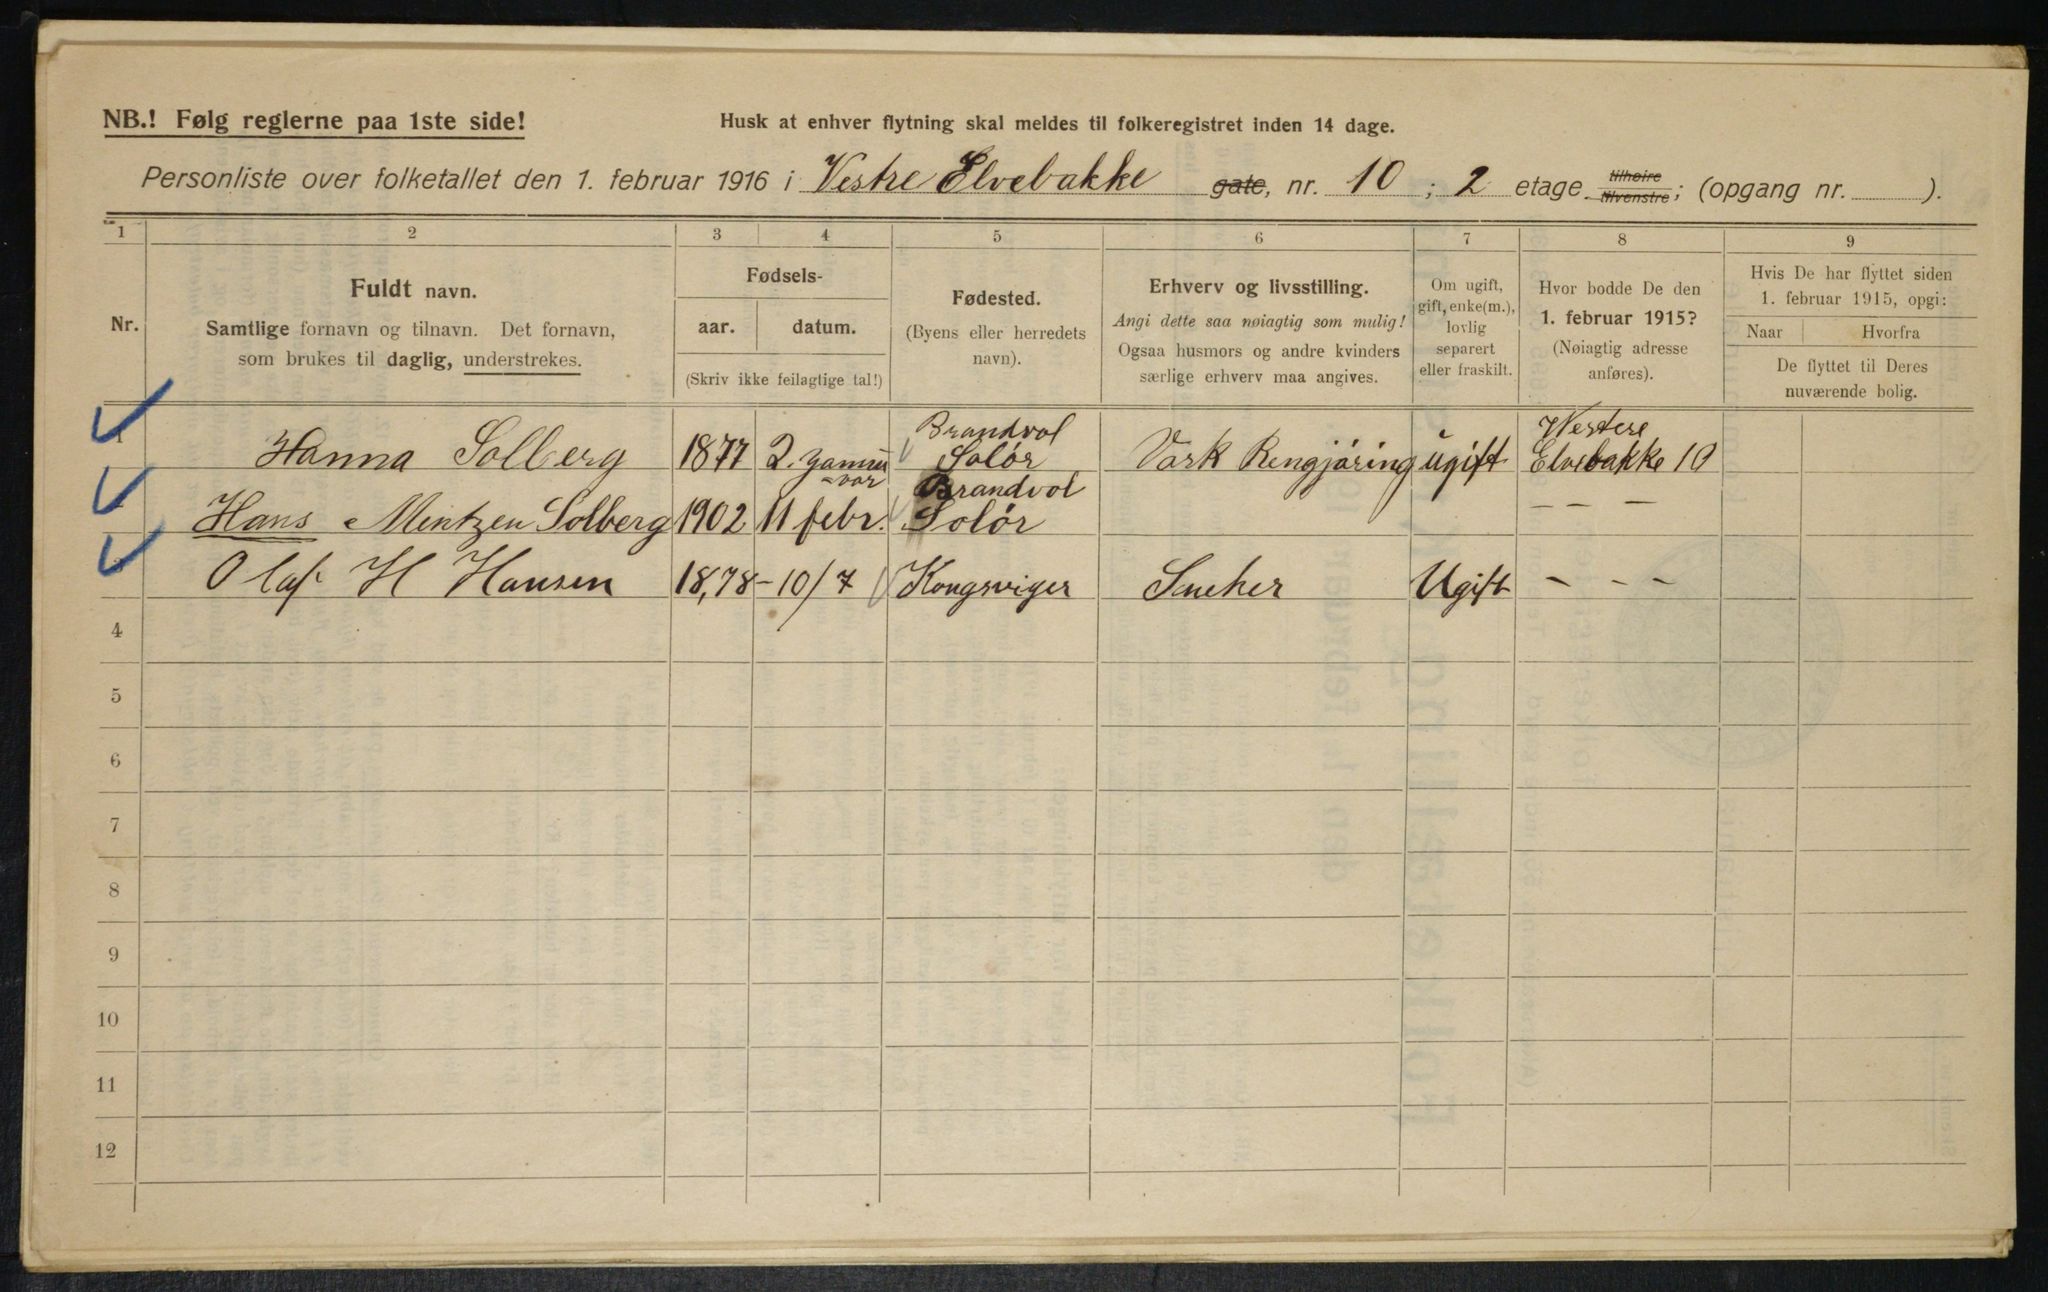 NB.! Følg reglerne paa 1ste side!
Husk at enhver flytning skal meldes til folkeregistret inden 14 dage.
Personliste over folketallet den 1. februar 1916 i Vestre Elvebakke gate, nr. 10 ; 2 etage tilhøire tilvenstre; (opgang nr. ).
1 2 3 4 5 6 7 8 9
Nr.
Fuldt navn.
Samtlige fornavn og tilnavn. Det fornavn,
som brukes til daglig, understrekes.
Fødsels-
aar. datum.
(Skriv ikke feilagtige tal!)
Fødested.
(Byens eller herredets
navn).
Erhverv og livsstilling.
Angi dette saa nøiagtig som mulig!
Ogsaa husmors og andre kvinders
særlige erhverv maa angives.
Om ugift,
gift, enke(m.),
lovlig
separert
eller fraskilt.
Hvor bodde De den
1. februar 1915?
(Nøiagtig adresse
anføres).
Hvis De har flyttet siden
1. februar 1915, opgi:
Naar Hvorfra
De flyttet til Deres
nuværende bolig.
Brandvol Westere
1 Hanna Solberg 1877 2. Solør Vask Rengjøring ugift Elvebakke 10
Brandvol
Hans Mentzen Solberg 1902 11 febr. Solør — — —
Olaf H Hansen 18,78 - 10/7 Kongsviger Sneker Ugift - - -
4
5
6
7
8
9
10
11
12